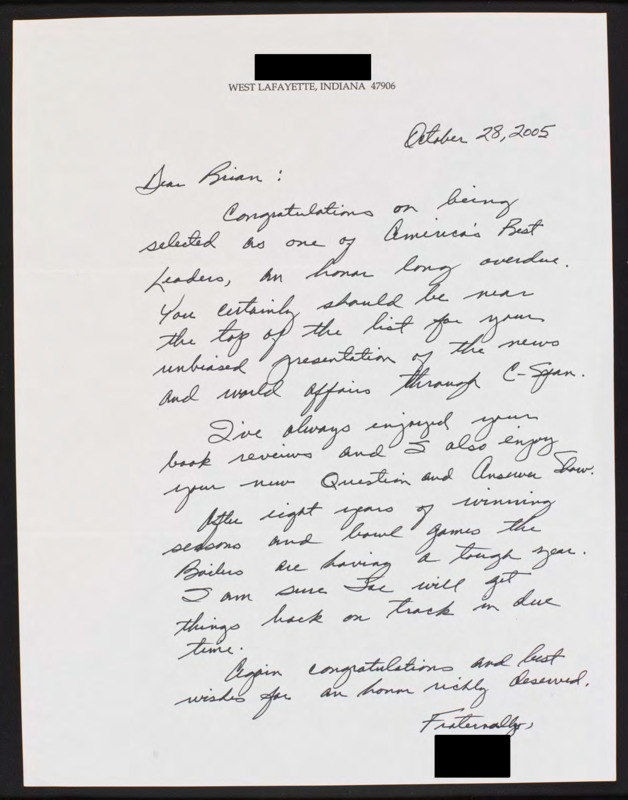 WEST LAFAYETTE, INDIANA 47906
October 28, 2005
Dear Brian:
Congratulations on being
selected as one of America's Best
Leaders, an honor long overdue.
You certainly should be near
the top of the list for your
unbiased presentation of the news
and world affairs through C-Span.
I've always enjoyed your
book reveiws and I also enjoy
your new Question and Answer Show.
After eight years of winning
seasons and bowl games the
Boilers are having a tough year.
I am sure Joe will get
things back on track in due
time.
Again congratulations and best
wishes for an honor richly deserved.
Fraternally,